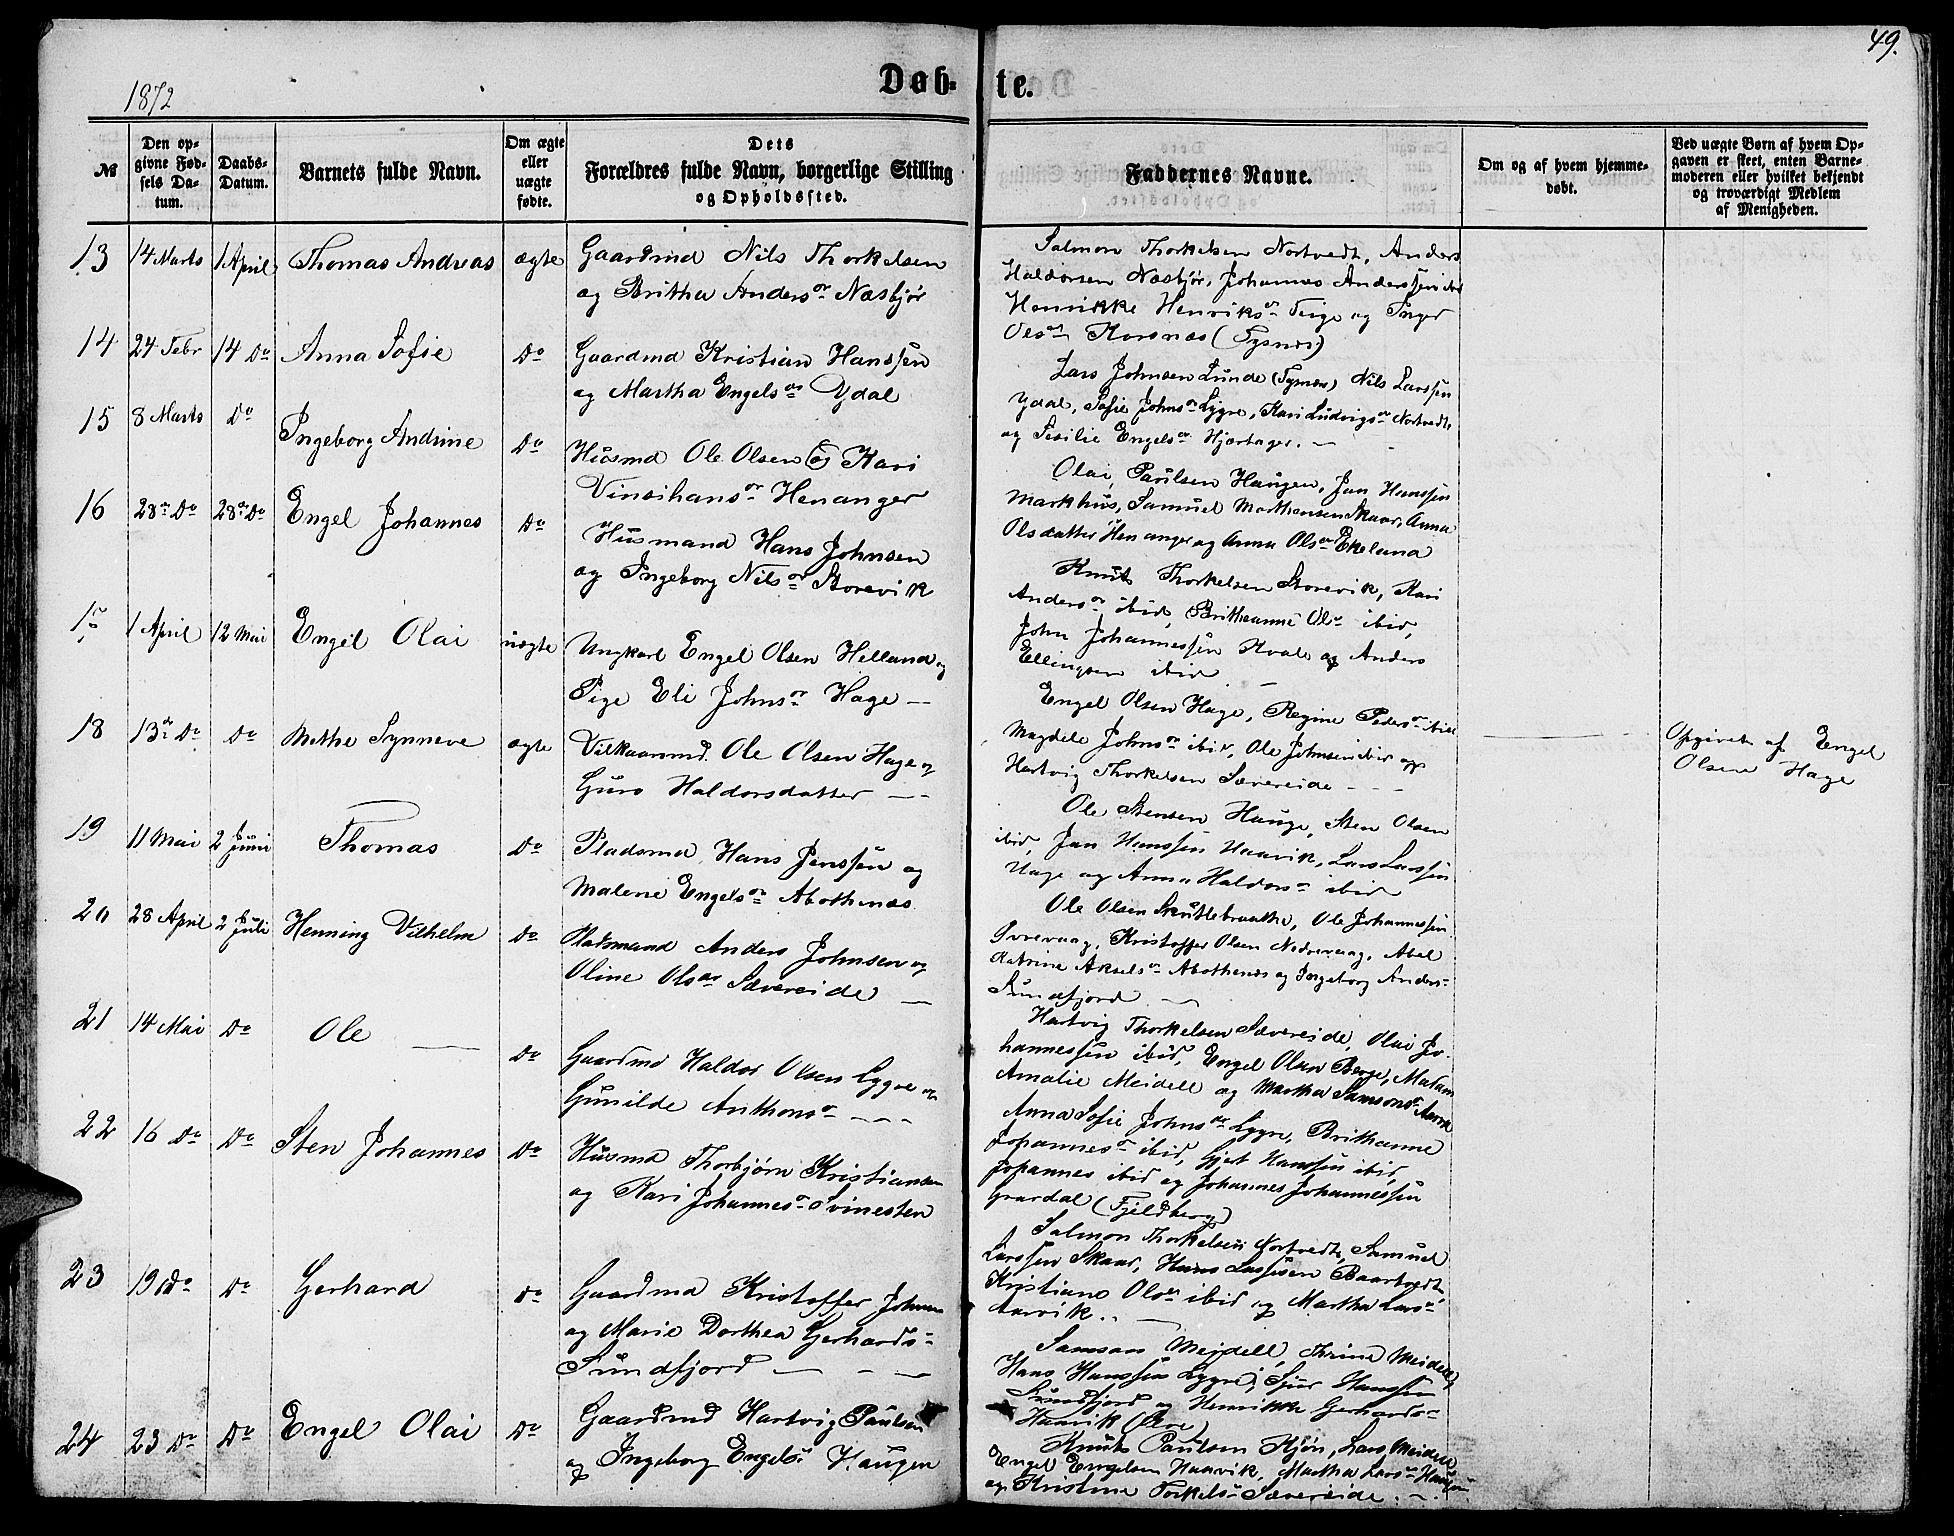 49.
1872
Døb- te.
№
Den op-
givne Fød-
sels Da-
tum.
Daabs-
Datum.
Barnets fulde Navn.
Om ægte
eller
uægte
fødte.
Dets
Forældres fulde Navn, borgerlige Stilling
og Opholdssted.
Faddernes Navne.
Om og af hvem hjemme-
døbt.
Ved uægte Børn af hvem Op-
gaven er skeet, enten Barne-
moderen eller hvilket bekjendt
og troværdigt Medlem
af Menigheden.
13 14 Marts 1 April Thomas Andreas ægte Gaardmd Nils Thorkelsen
og Britha Anders Næsbjør
Salmon Thorkelsen Nortvedt, Anders
Haldorsen Næsbjør, Johannes Anderssen
Henrikke Henriks Teige og Inger
Ols Korsnæs (Tysnæs)
14 24 Febr 14 Do Anna Sofie Do Gaardmd Kristian Hanssen
og Martha Engels Ydal
Lars Johnsen Lunde (Tysnæs) Nils Larssen
Ydal, Sofie Johns Lygre, Kari Ludvigs Nortvedt,
og Sesilie Engels Hjartager. —
15 8 Marts Do Ingeborg Andrine Do Husmd Ole Olsen og Kari
Vinsihans Henanger
Olai Paulsen Haugen, Jan Hanssen
Markhus, Samuel Mathensen Skaar, Anna
Olsdatter Henanger og Anna Ols Ekeland
16 28 Do 28 Do Engel Johannes Do Husmand Hans Johnsen
og Ingeborg Nils Storevik
Knut Thorkelsen Storevik, Kari
Anders ibid, Brithanne Ols ibid,
John Johannessen Kvale og Anders
Ellingsen ibid —
17 1 April 12 Mai Engel Olai uægte Ungkarl Engel Olsen Helland og
Pige Eli Johns Hage —
Engel Olsen Hage, Regine Peders ibid
Magdele Johns ibid, Ole Johnsen ibid og
Hartvig Thorkelsen Sævereide - - -
Opgivet af Engel
Olsen Hage
18 13 Do Do Methe Synneve ægte Vilkaarmd Ole Olsen Hage og
Guro Haldorsdatter — —
Ole Stensen Hauge, Sten Olsen
ibid, Jan Hanssen Haavik, Lars Larssen
Hage og Anna Haldors ibid
19 11 Mai 2 Juni Thomas Do Pladsmd Hans Jenssen og
Malene Engels Abothenæs
Ole Olsen Skuttebraathe, Ole Johannessen
Kristoffer Olsen Nedrevaag, Abel
Katrine Aksels Abothenæs og Ingeborg Anders
Sundfjord —
20 28 April 2 Juli Henning Vilhelm Do Pladsmand Anders Johnsen og
Oline Ols Sævereide —
Hartvig Thorkelsen Sævereide, Olai Jo-
hannessen ibid, Engel Olsen Berge, Madam
Amalie Meidell og Martha Samsons
21 14 Mai Do Ole — Do Gaardmd Haldor Olsen Lygre og
Gunilde Anthons - - -
Anna Sofie Johns Lygre, Brithanne
Johannes ibid, Gjert Hanssen ibid,
Johannes ibid og Johannes Johannessen
Grardal (Fjeldberg)
22 16 Do Do Sten Johannes Do Husmd Thorbjørn Kristiansen
og Kari Johannes Svinesten
Salmon Thorkelsen Nortvedt, Samuel
Larssen Skaar, Hans Lassesen Baartvedt
Kristiane Ols ibid og Martha Lars
23 19 Do Do Gerhard Do Gaardmd Kristoffer Johnsen
og Marie Dorthea Gerhards
Sundfjord — — —
Samson Mejdell, Trine Meidell,
Hans Hanssen Lygre, Sjur Hanssen
Sundfjord og Henrikke Gerhards
Haavik (Ølve)
24 23 Do Do Engel Olai Do Gaardmd Hartvig Paulsen
og Ingeborg Engels Haugen
Knut Paulsen Kjøn, Lars Meidell,
Engel Engelsen Haavik, Martha Lars
og Kristine Torkels Sævereide. —